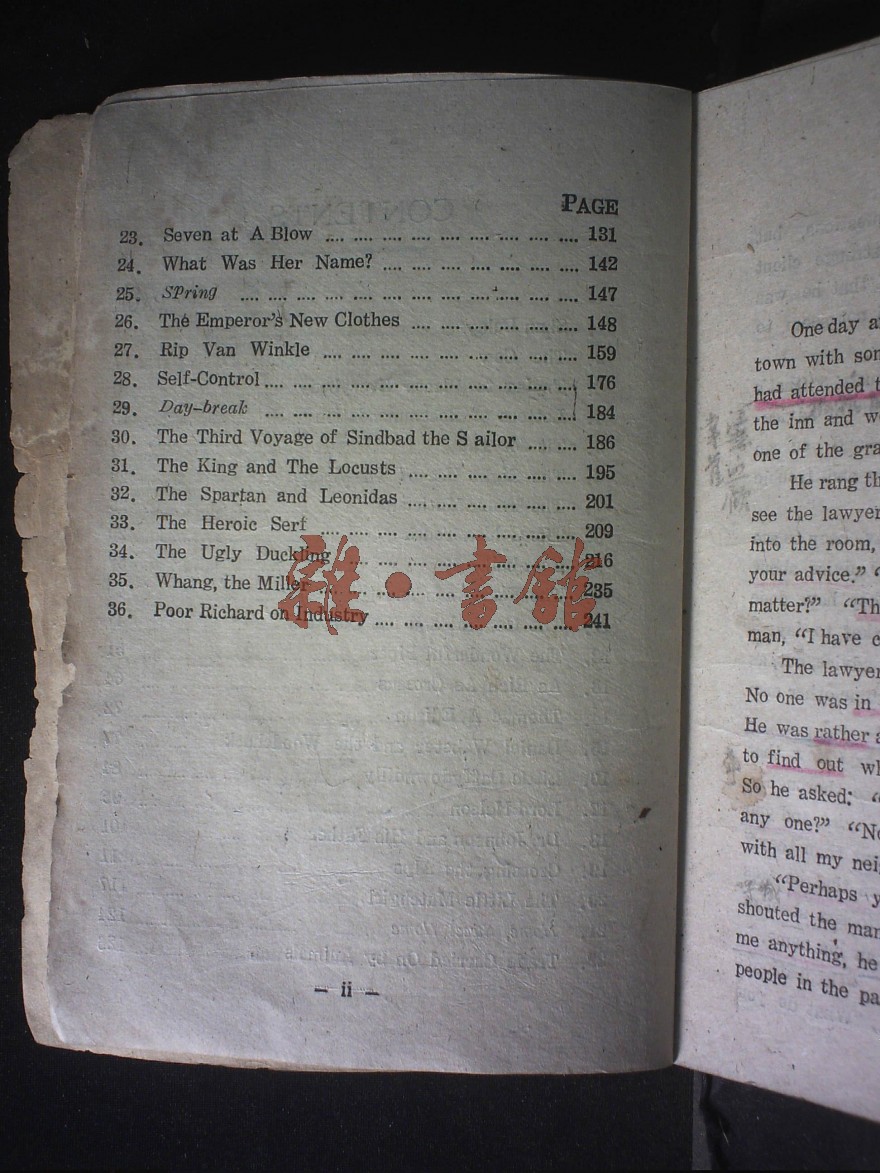 PAGE
23. Seven at A Blow .... .... .... .... .... .... .... .... .... 131
24. What Was Her Name? .... .... .... .... .... .... .... 142
25. Spring .... .... .... .... .... .... .... .... .... .... .... .... 147
26. The Emperor's New Clothes .... .... .... .... .... .... 148
27. Rip Van Winkle .... .... .... .... .... .... .... .... .... 159
28. Self-Control .... .... .... .... .... .... .... .... .... .... .... 176
29. Day-break .... .... .... .... .... .... .... .... .... .... .... 184
30. The Third Voyage of Sindbad the S ailor .... .... 186
31. The King and The Locusts .... .... .... .... .... .... 195
32. The Spartan and Leonidas .... .... .... .... .... .... 201
33. The Heroic Serf .... .... .... .... .... .... .... .... .... 209
34. The Ugly Duckling .... .... .... .... .... .... .... .... 216
35. Whang, the Miller .... .... .... .... .... .... .... .... 235
36. Poor Richard on Industry .... .... .... .... .... .... .... 241
雜·書館
– ii –
One day
town with
had attended
the inn and
one of the
He rang
see the lawyer
into the room,
your advice."
matter?"
man, "I have
The lawyer
No one was in
He was rather
to find out
So he asked:
any one?"
with all my
"Perhaps
shouted the
me anything, he
people in the